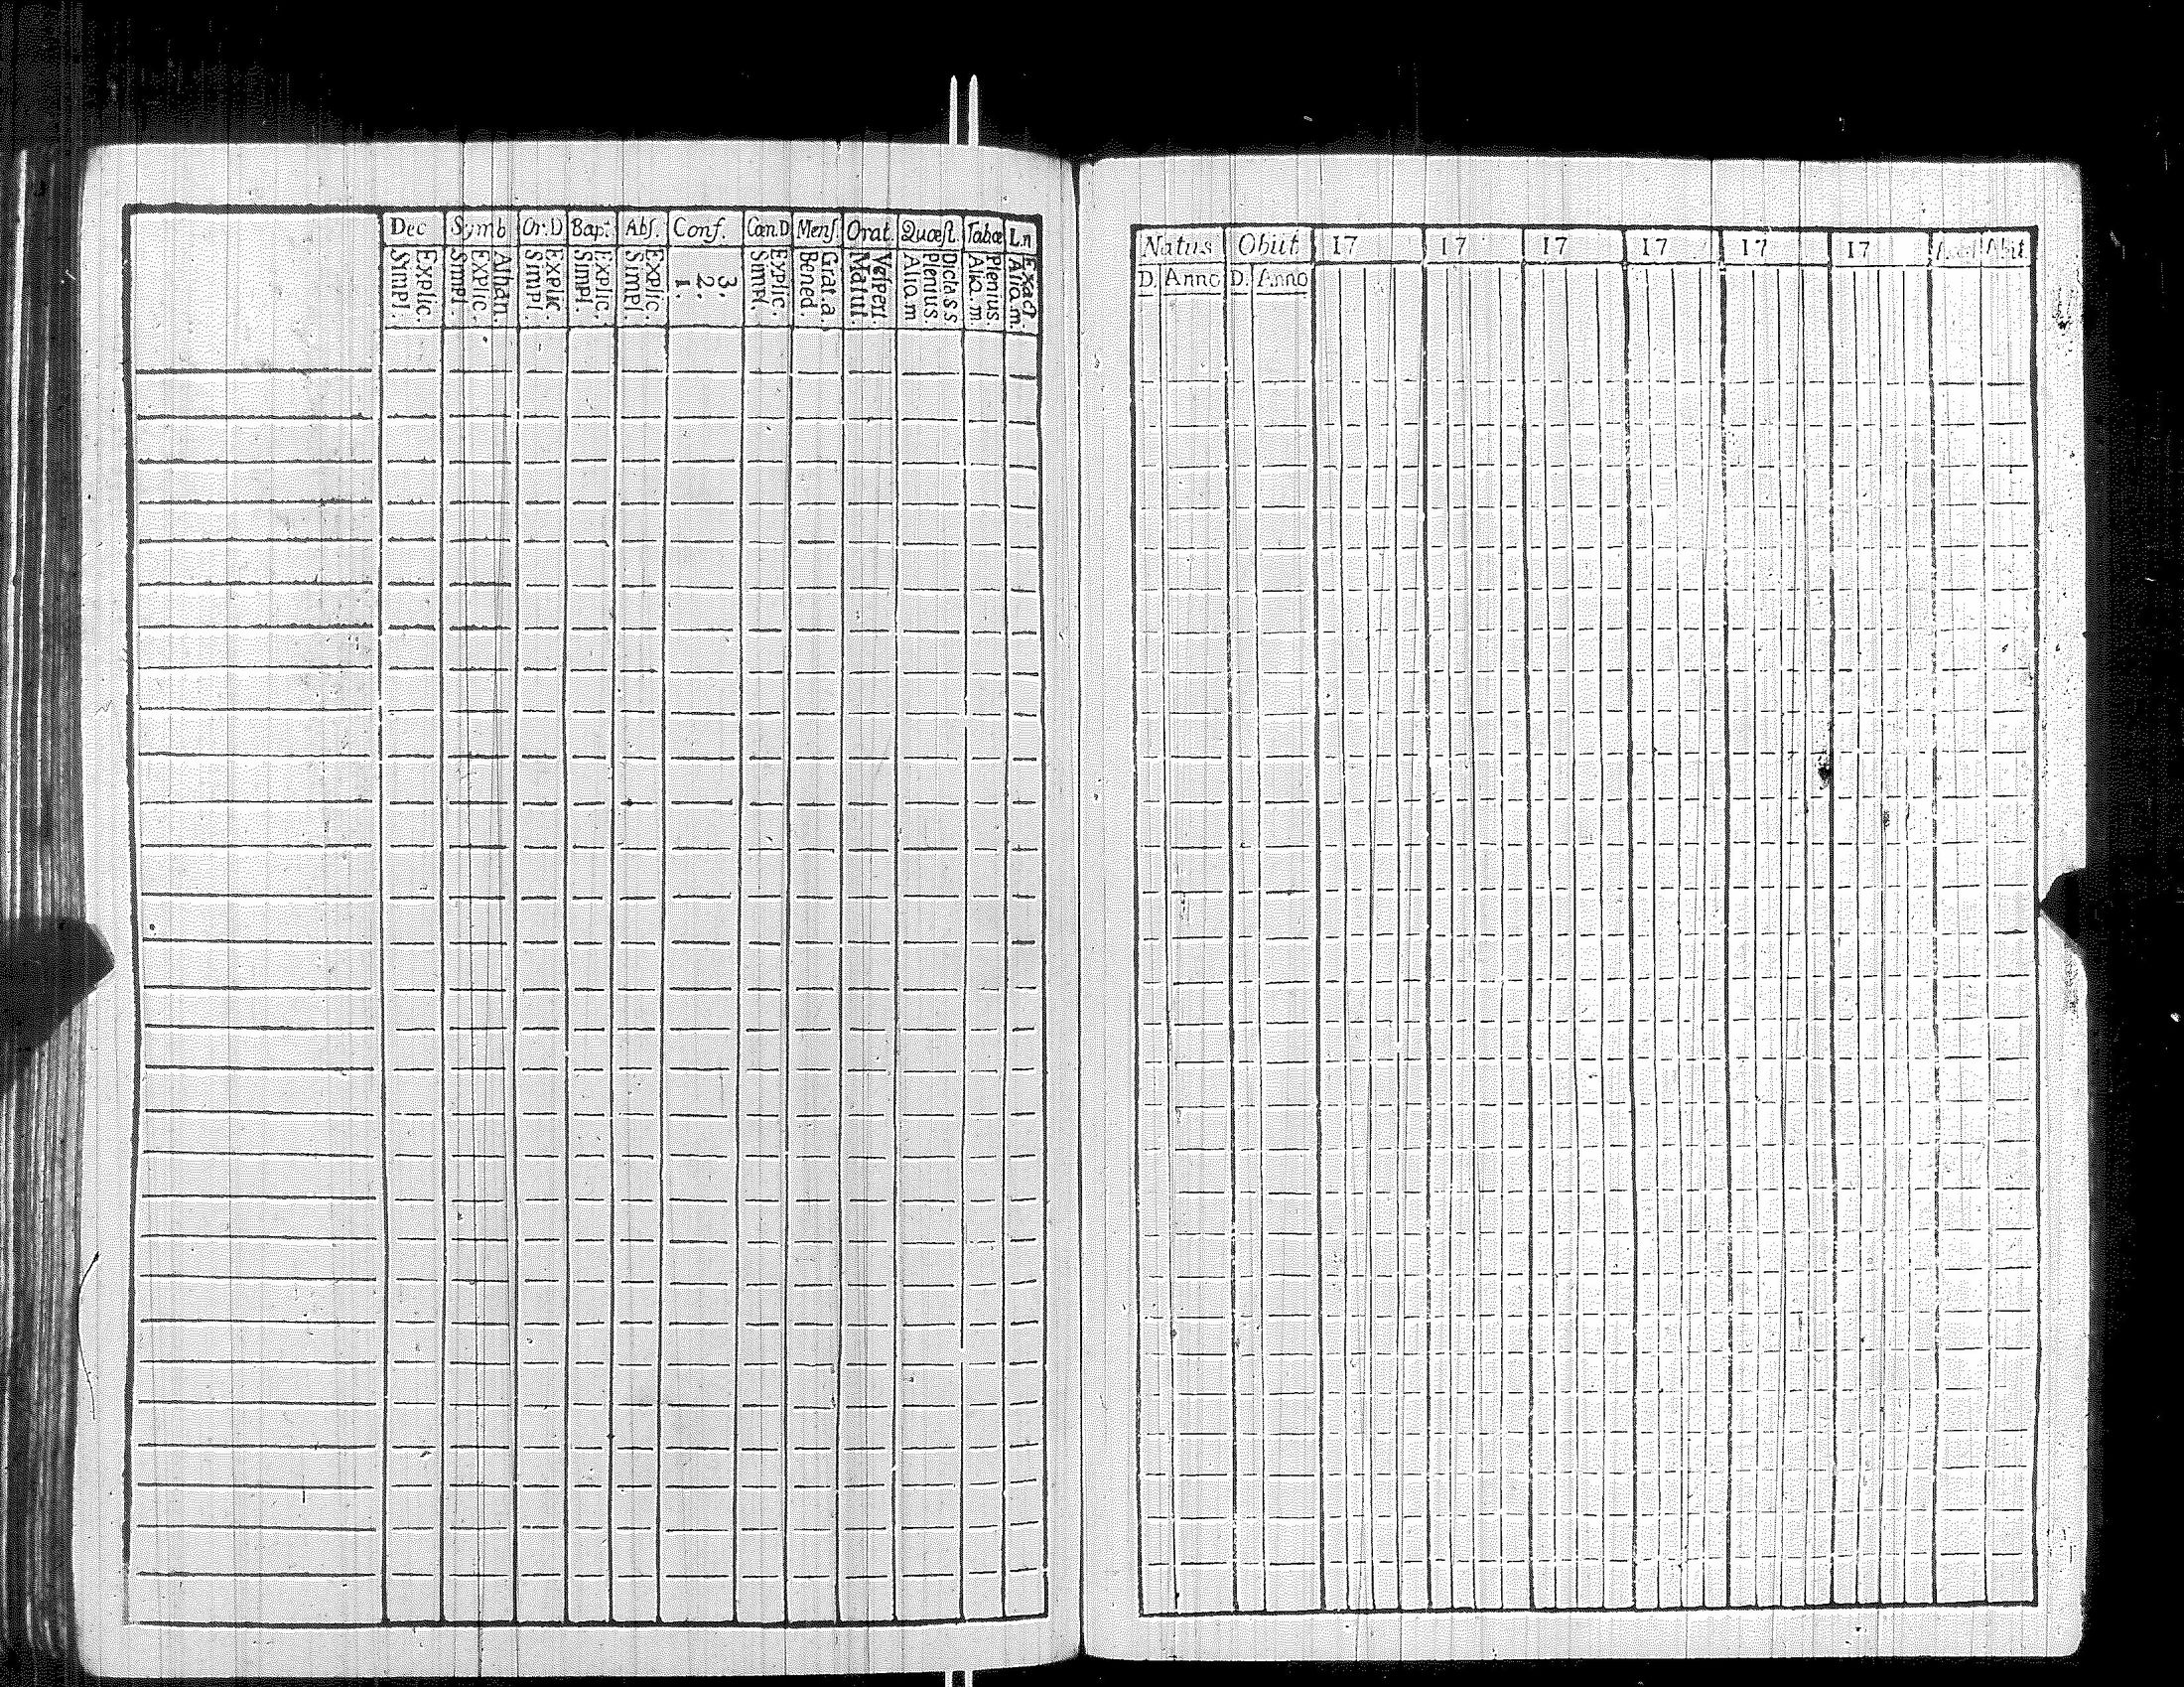 Dec Symb Or.D Bapt Abs. Conf. Cœn.D Mens. Orat. Quæst. Tabœ Ln
Explic. Simpl.
Athan. Explic. Simpl.
Explic. Simpl.
Explic. Simpl.
Explic. Simpl.
3. 2. 1.
Explic. Simpl.
Grat.a. Bened.
Vespert. Matut.
Dicta s.s. Plenius. Aliq.m
Plenius. Aliq.m
Exact Aliq.m.
Natus Obiit 17 17 17 17 17 17 Abit
D. Anno D. Anno